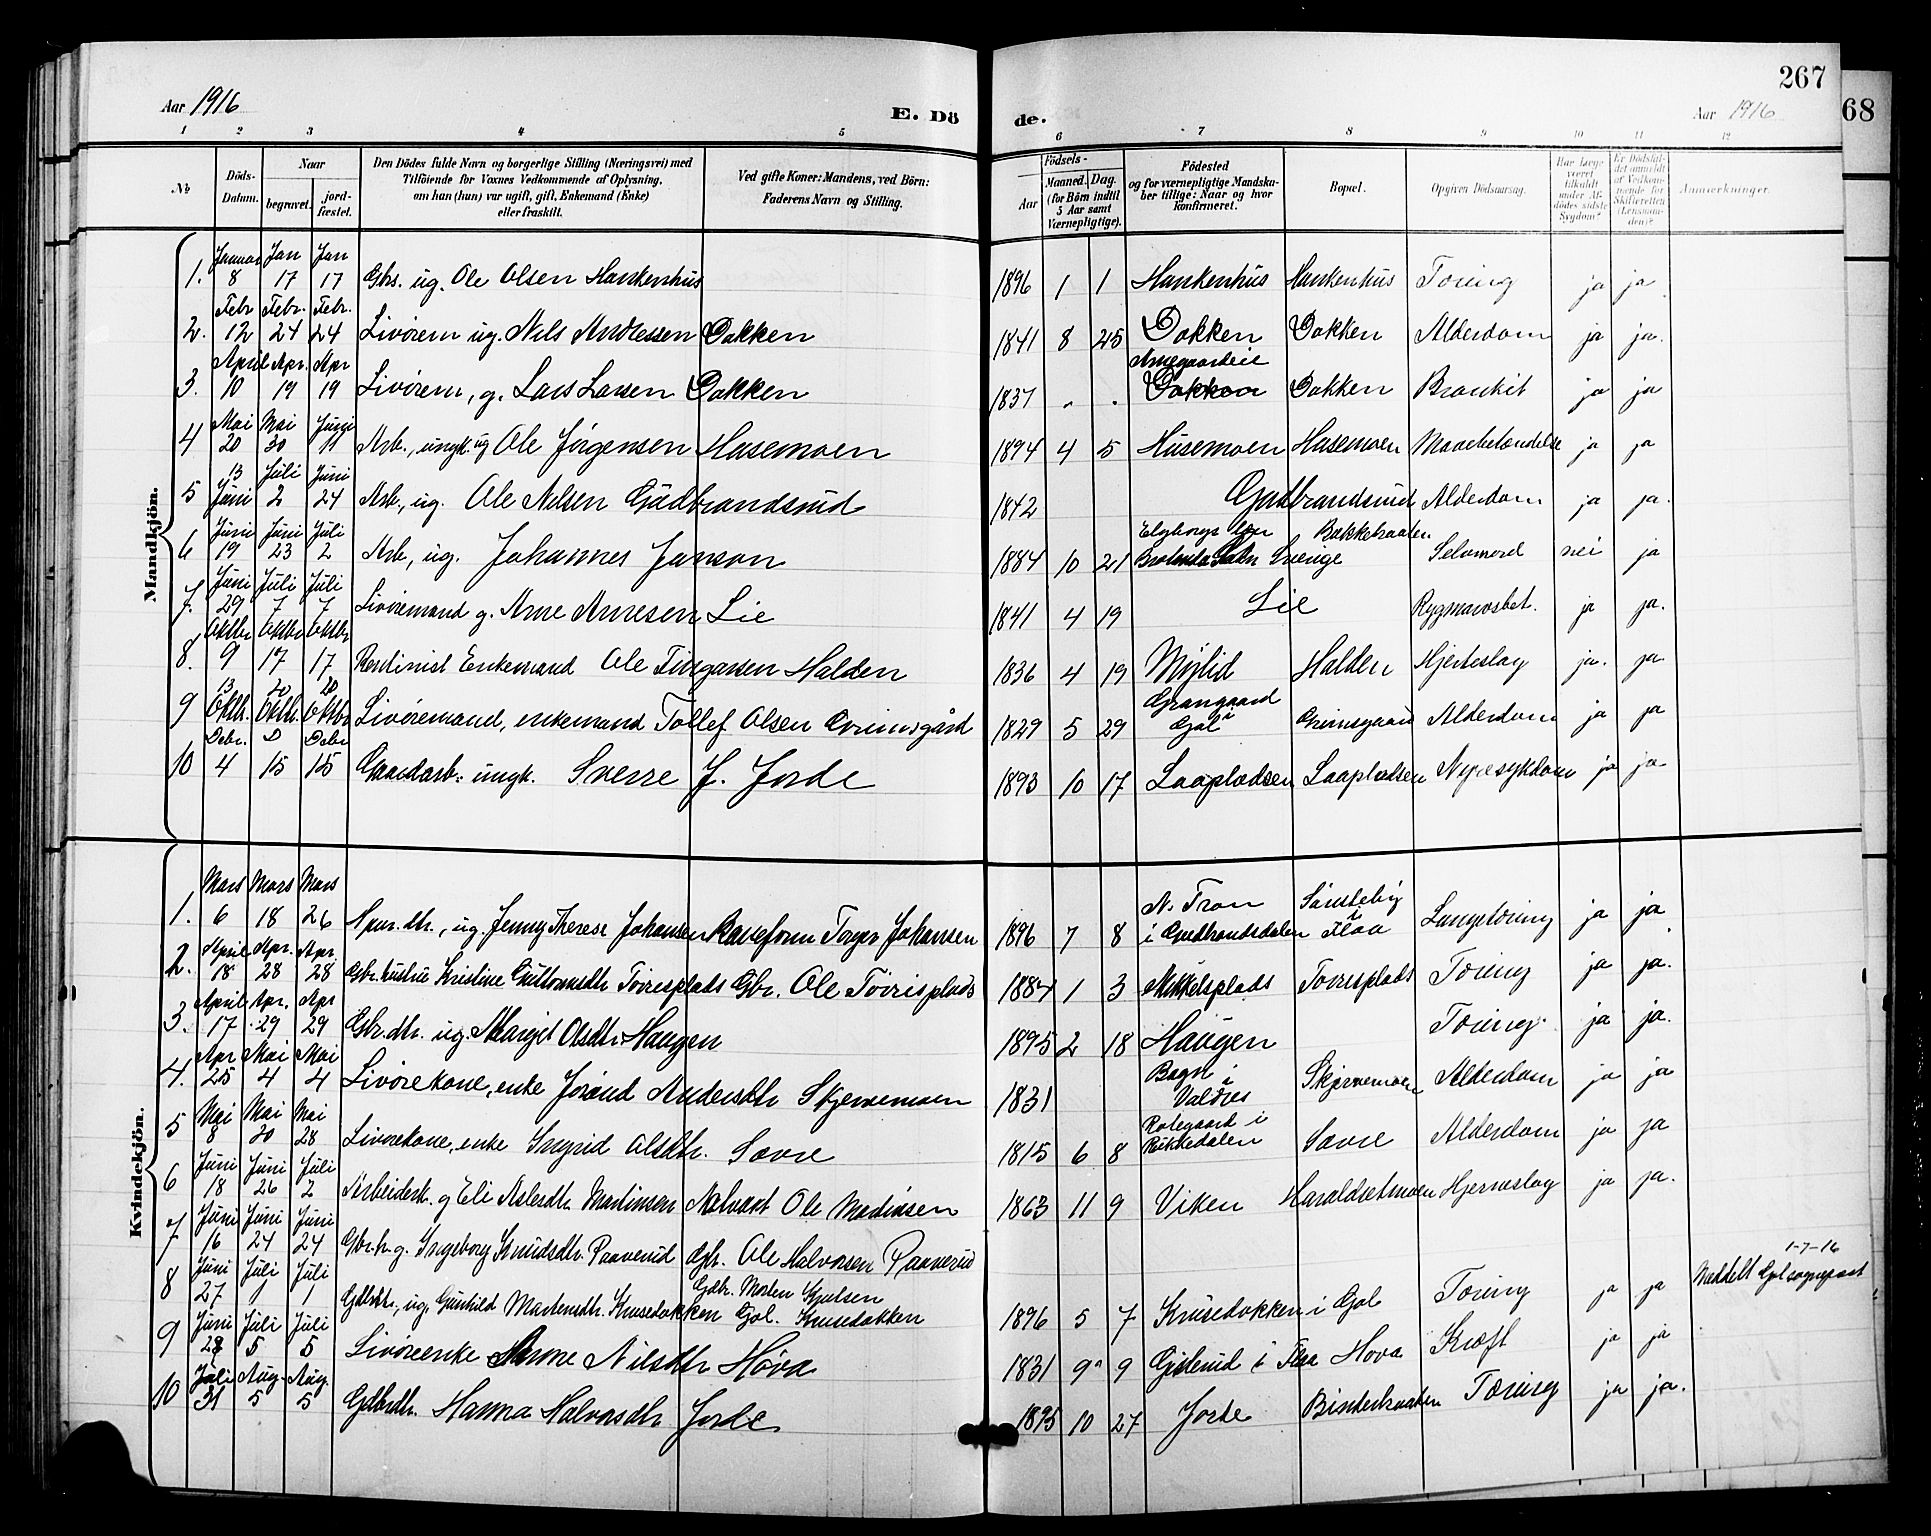 Aar 1916
E. Dö
de.
267
Aar 1916
68
1 2 3 4 5 6 7 8 9 10 11 12
No
Döds-Datum.
Naar
begravet.
jord-fæstet.
Den Dödes fulde Navn og borgerlige Stilling (Næringsvei) med
Tilföiende for Voxnes Vedkommende af Oplysning,
om han (hun) var ugift, gift, Enkemand (Enke)
eller fraskilt.
Ved gifte Koner: Mandens, ved Börn:
Faderens Navn og Stilling.
Födsels-
Aar
Maaned. Dag.
(for Börn indtil
5 Aar samt
Værnepligtige).
Födested
og for værnepligtige Mandska-
ber tillige: Naar og hvor
konfirmeret.
Bopæl.
Opgiven Dödsaarsag.
Har Læge
været
tilkaldt
under Af-
dödes sidste
Sygdom?
Er Dödsfal-
det anmeldt
af Vedkom-
mende for
Skifteretten
(Lensman-
den)?
Anmærkninger.
Mandkjön.
1. Januar 8 Jan 17 Jan 17 Gbs. ug. Ole Olsen Hankenhus 1896 1 1 Hankenhus Hankenhus Tæring ja ja
2. Febr 12 Febr. 24 Febr. 24 Livörem ug. Nils Andressen Dokken 1841 8 25 Dokken Dokken Alderdom ja ja.
3. April 10 Apr. 19 Apr 19 Livörem, g. Lars Larsen Dokken 1837 Arnegaardeie Dokken Dokken Bronkit ja ja
4 Mai 20 Mai 30 Juni 11 Arb., ungk. ug Ole Jörgensen Husemoen 1894 4 5 Husemoen Husemoen Mavebetændelse ja ja
5 13 Juni Juli 2 Juni 24 Arb., ug. Ole Nilsen Gudbrandsrud 1842 Gudbrandsrud Alderdom ja ja.
6 Juni 19 Juni 23 Juli 2 Arb, ug. Johannes Janson 1884 10 21 Elgborgs Län Sverige Bakkebraaten Selvmord nei ja
7. Juni 29 Juli 7 Juli 7 Livöremand g. Arne Arnesen Lie 1841 4 19 Lie Rygmarvsbet. ja ja.
8. Oktbr 9 Oktbr 17 Oktbr 17 Rentinist Enkemand Ole Turgarsen Halden 1836 4 19 Möjlid Halden Hjerteslag ja. ja.
9 13 Oktb. 20 Oktb. 20 Oktbr Livöremand, enkemand Tollef Olsen Grimsgård 1829 5 29 Grangaard i Gol Grimsgaard Alderdom ja ja
10 Debr. 4 D 15 Debr 15 Gaardarb. ungk. Sverre J. Jorde 1893 10 17 Laaplædsen Laaplædsen Nyresykdom ja ja
Kvindekjön.
1. Mars 6 Mars 18 Mars 26 Spor. dtr., ug. Jenny Therese Johansen Baneform Torger Johansen 1896 7 8 N. Fron i Gudbrandsdalen Sörsteby i Flaa Lungetæring ja ja
2. April 18 Apr. 28 Apr. 28 Gbr. hustru Kristine Guttormsdtr Torrisplads Gbr. Ole Torrisplads 1884 1 3 Mikkelsplads Torrisplads Tæring ja ja.
3. April 17 Apr. 29 Apr 29 Gbr. dtr. ug. Margit Olsdtr. Haugen 1895 2 18 Haugen Tæring ja ja.
4. Apr 25 Mai 4 Mai 4 Livörekone, enke Jorånd Andersdtr Skjervemoen 1831 Bagn i Valdres Skjervemoen Alderdom ja ja
5 Mai 8 Mai 20 Mai 28 Livörekone, enke Ingrid Olsdtr. Sævre 1815 6 8 Rotegaard i Rukkedalen Sævre Alderdom ja ja
6 Juni 18 Juni 26 Juli 2 Arbeiderk. g Eli Aslesdtr Martinsen Ole Madinsen 1863 11 9 Viken Haraldsetmoen Hjerneslag ja ja.
7 Juni 16 Juni 24 Juni 24 Gbr. h. g. Ingeborg Knudsdtr. Paaverud Gbr. Ole Halvorsen Paaverud
8 Juni 27 Juli 1 Juli 1 Gdbrdtr., ug. Gunhild Mortensdtr. Krusedokken Gdbr. Morten Knutsen Gol. Krusedokken 1896 5 7 Krusedokken i Gol Tæring ja ja Meddelt Gol sogneprest 1-7-16
9 Juni 28 Juli 5 Juli 5 Livöreenke Anne Nilsdtr Höva 1831 9 9 Gislerud i Flaa Hova Kræft ja ja
10 Juli 31 Aug. 5 Aug. 5 Gdbrdtr. Hanna Halvorsdtr Jorde 1895 10 27 Jorde Binderbraaten Tæring ja ja.